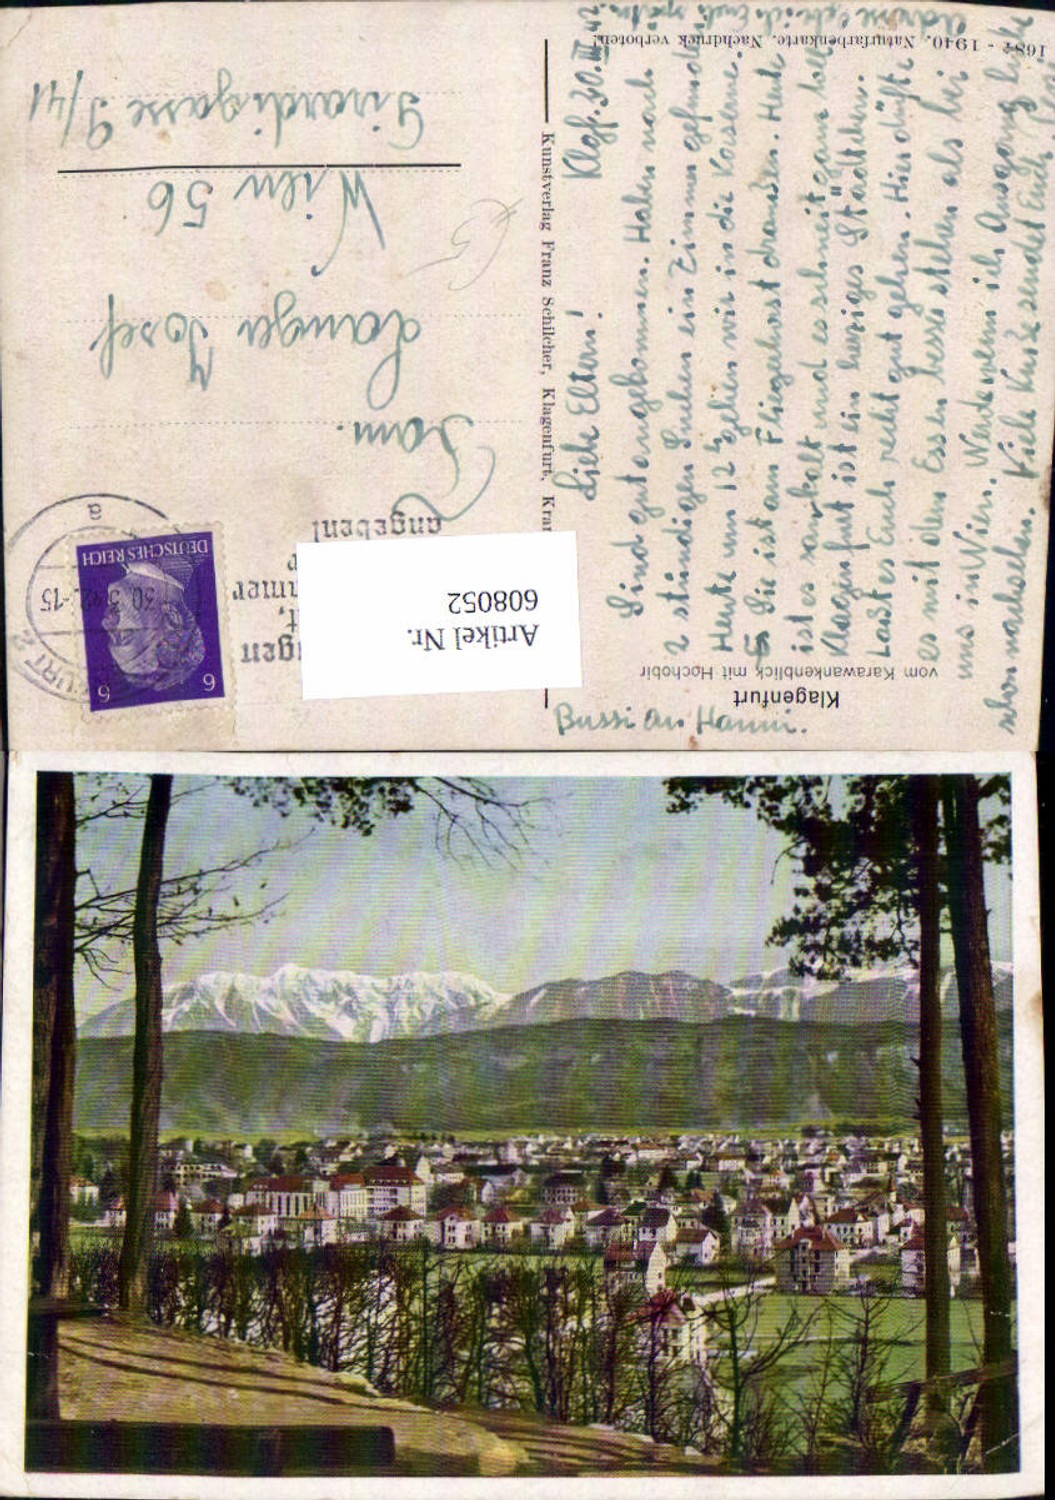 Klagenfurt
vom Karawankenblick mit Hochobir
1940. Naturfarbenkarte. Nachdruck verboten!
Kunstverlag Franz Schilcher, Klagenfurt,
DEUTSCHES REICH
6
6
a
angeben!
Artikel Nr.
608052
Fam.
Langer Josef
Wien 56
Girardigasse 9/41
Klgf. 30. III. 42
Liebe Eltern!
Sind gut angekommen. Haben nach
2 stündigen Suchen ein Zimmer gefunden
Heute um 12h gehen wir in die Kaserne.
Sie ist am Fliegerhorst draußen. Heute
ist es saukalt und es schneit ganz toll
Klagenfurt ist ein herziges Städtchen.
Laßt es Euch recht gut gehen. Hier dürfte
es mit dem Essen besser stehen als bei
uns in Wien. Werde wenn ich Ausgang habe
schon nachsehen. Viele Küße sendet Euch
Adresse schreib ich Euch später.
Bussi an Hanni.